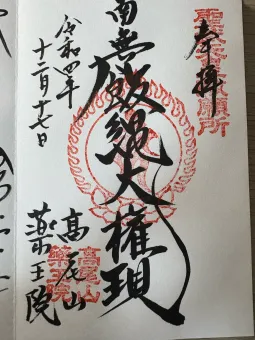 奉拝
聖武天皇勅願所
南無飯縄大権現
高尾山
薬王院
高尾山
薬王院
令和四年
十二月十七日